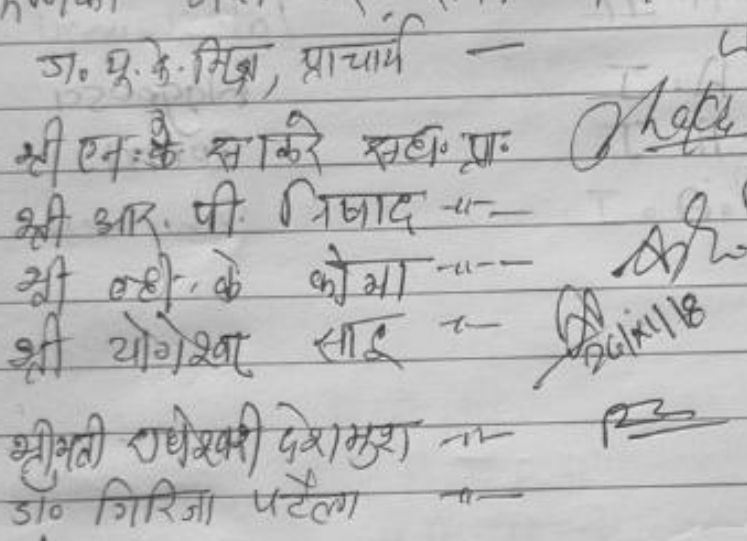 डा. यू. के. मिश्र, प्राचार्य —
श्री एन. के साकरे सहा. प्रा.
श्री आर. पी. निषाद -"-
श्री व्ही. के कोमा -"-
श्री योगेश्वर साहू -"-
26/XI/18
श्रीमती राधेश्वरी देशमुख -"-
डॉ० गिरिजा पटेल -"-